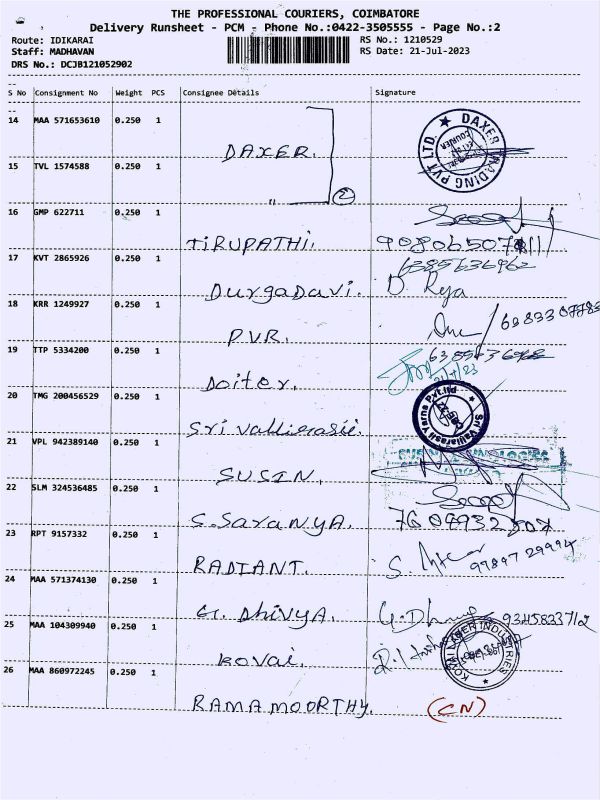 THE PROFESSIONAL COURIERS, COIMBATORE
Delivery Runsheet - PCM - Phone No.:0422-3505555 - Page No.:2
Route: IDIKARAI
RS No.: 1210529
Staff: MADHAVAN
RS Date: 21-Jul-2023
DRS No.: DCJB121052902
S No Consignment No Weight PCS Consignee Details Signature
14 MAA 571653610 0.250 1
DAXER.
DAXER TRADING PVT LTD.
15 TVL 1574588 0.250 1
" 2
16 GMP 622711 0.250 1
TIRUPATHI.
17 KVT 2865926 0.250 1
6385636962
DurgaDavi.
18 KRR 1249927 0.250 1
P.V.R.
19 TTP 5334200 0.250 1
Doiter.
20 TMG 200456529 0.250 1
Sri Vallirasii.
Sri Valliarasii Yarns Pvt.Ltd
21 VPL 942389140 0.250 1
SUSIN TECHNOLOGIES
SUSIN.
22 SLM 324536485 0.250 1
S. SaranYA.
23 RPT 9157332 0.250 1
97897 29994
RADIANT.
24 MAA 571374130 0.250 1
G. DhivYA.
9345833712
25 MAA 104309940 0.250 1
KOVAI LASER INDUSTRIES
Kovai.
26 MAA 860972245 0.250 1
RAMAMOORTHY.
(CN)